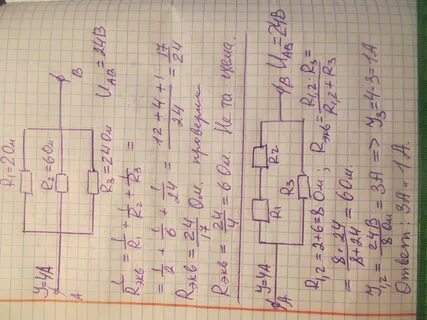 R₁=2Ом
R₂=6Ом
R₃=24Ом
У=4А
А
В
U_AB=24В
1/Rэкв = 1/R₁ + 1/R₂ + 1/R₃ =
= 1/2 + 1/6 + 1/24 = (12+4+1)/24 = 17/24
Rэкв = 24/17 Ом. проверим
Rэкв = 24/4 = 6 Ом. Не та схема.
R₁
R₂
R₃
У=4А
А
В
U_AB=24В
R₁,₂ = 2+6=8 Ом; Rэкв = (R₁,₂·R₃)/(R₁,₂+R₃) =
= (8·24)/(8+24) = 6 Ом.
У₁,₂ = 24В/8Ом = 3А => У₃=4-3=1А
Ответ: 3А, 1А.